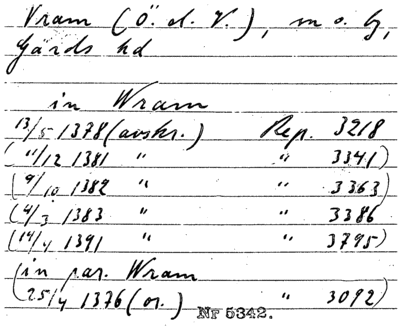 Vram (Ö. o. V.), m o. by,
Gärds hd
in Wram
13/5 1378 (avskr.) Rep. 3218
(11/12 1381 " " 3341)
(9/10 1382 " " 3363)
(4/3 1383 " " 3386
(14/4 1391 " " 3795)
(in par. Wram
(25/4 1376 (or.) " 3092)
Nr 5342.